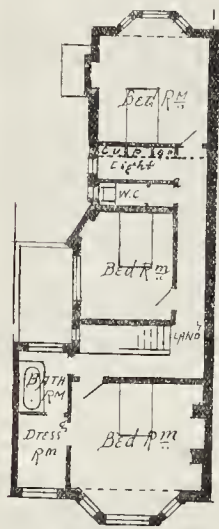 BED RM
CUPD
Light
W.C
BED Rm
LAND'G
BATH
RM
DRESS'G
Rm
BED Rm